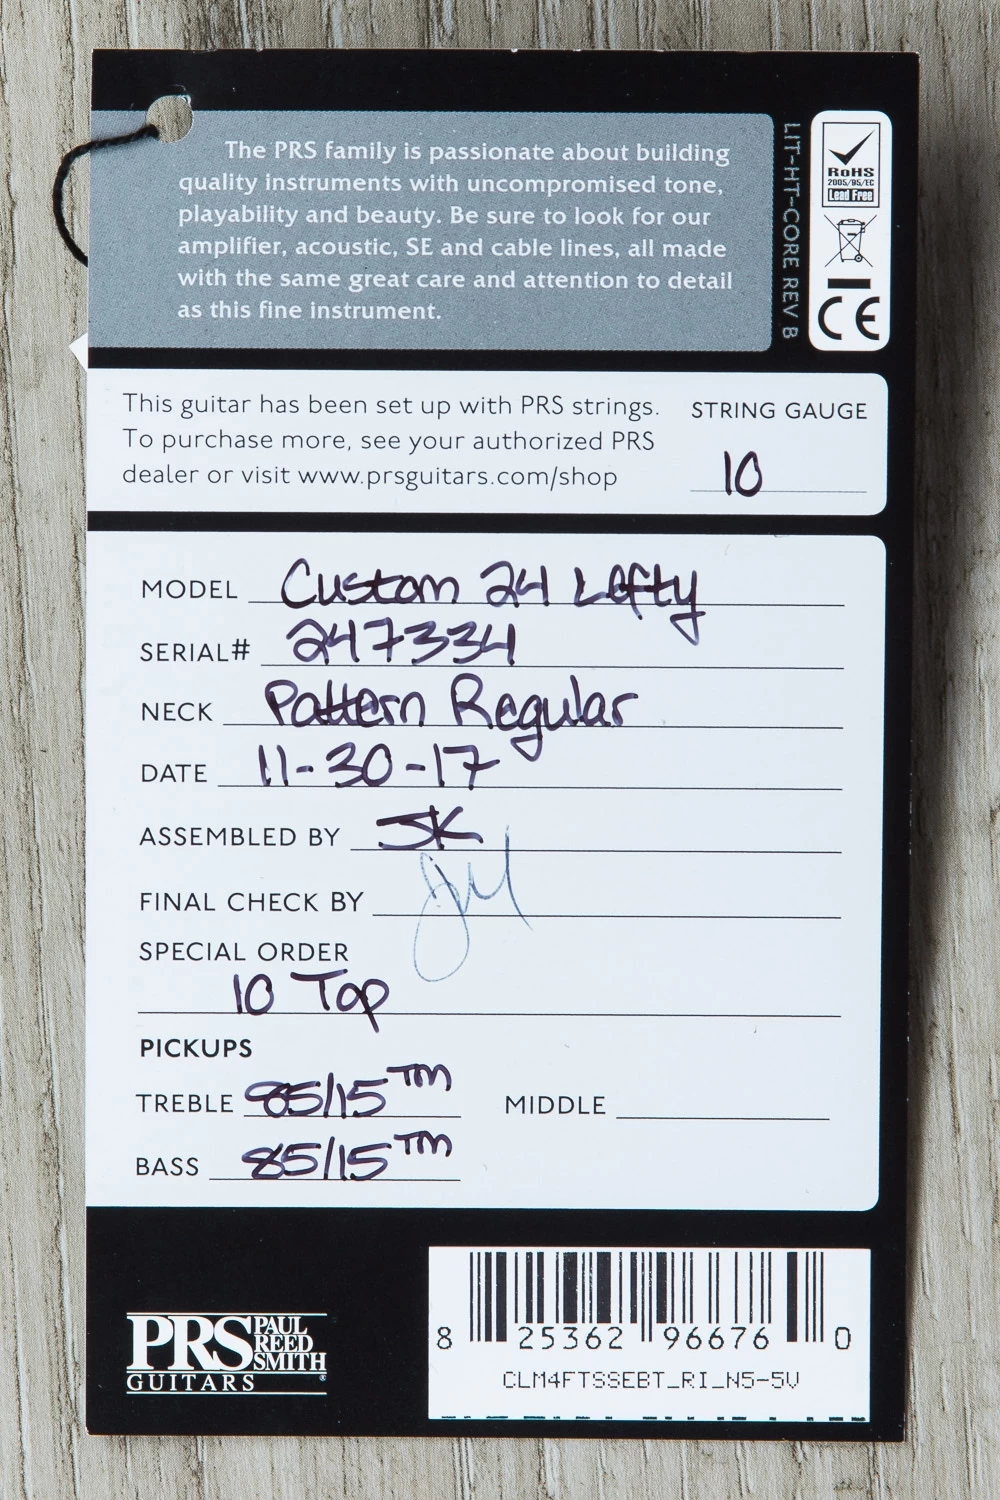 The PRS family is passionate about building
quality instruments with uncompromised tone,
playability and beauty. Be sure to look for our
amplifier, acoustic, SE and cable lines, all made
with the same great care and attention to detail
as this fine instrument.
LIT-HT-CORE REV B
RoHS
2005/95/EC
Lead Free
CE
This guitar has been set up with PRS strings.
To purchase more, see your authorized PRS
dealer or visit www.prsguitars.com/shop
STRING GAUGE
10
MODEL Custom 24 Lefty
SERIAL# 247334
NECK Pattern Regular
DATE 11-30-17
ASSEMBLED BY JK
FINAL CHECK BY
SPECIAL ORDER
10 Top
PICKUPS
TREBLE 85/15™
MIDDLE
BASS 85/15™
PRS PAUL REED SMITH
GUITARS
8 25362 96676 0
CLM4FTSSEBT_RI_N5-5V